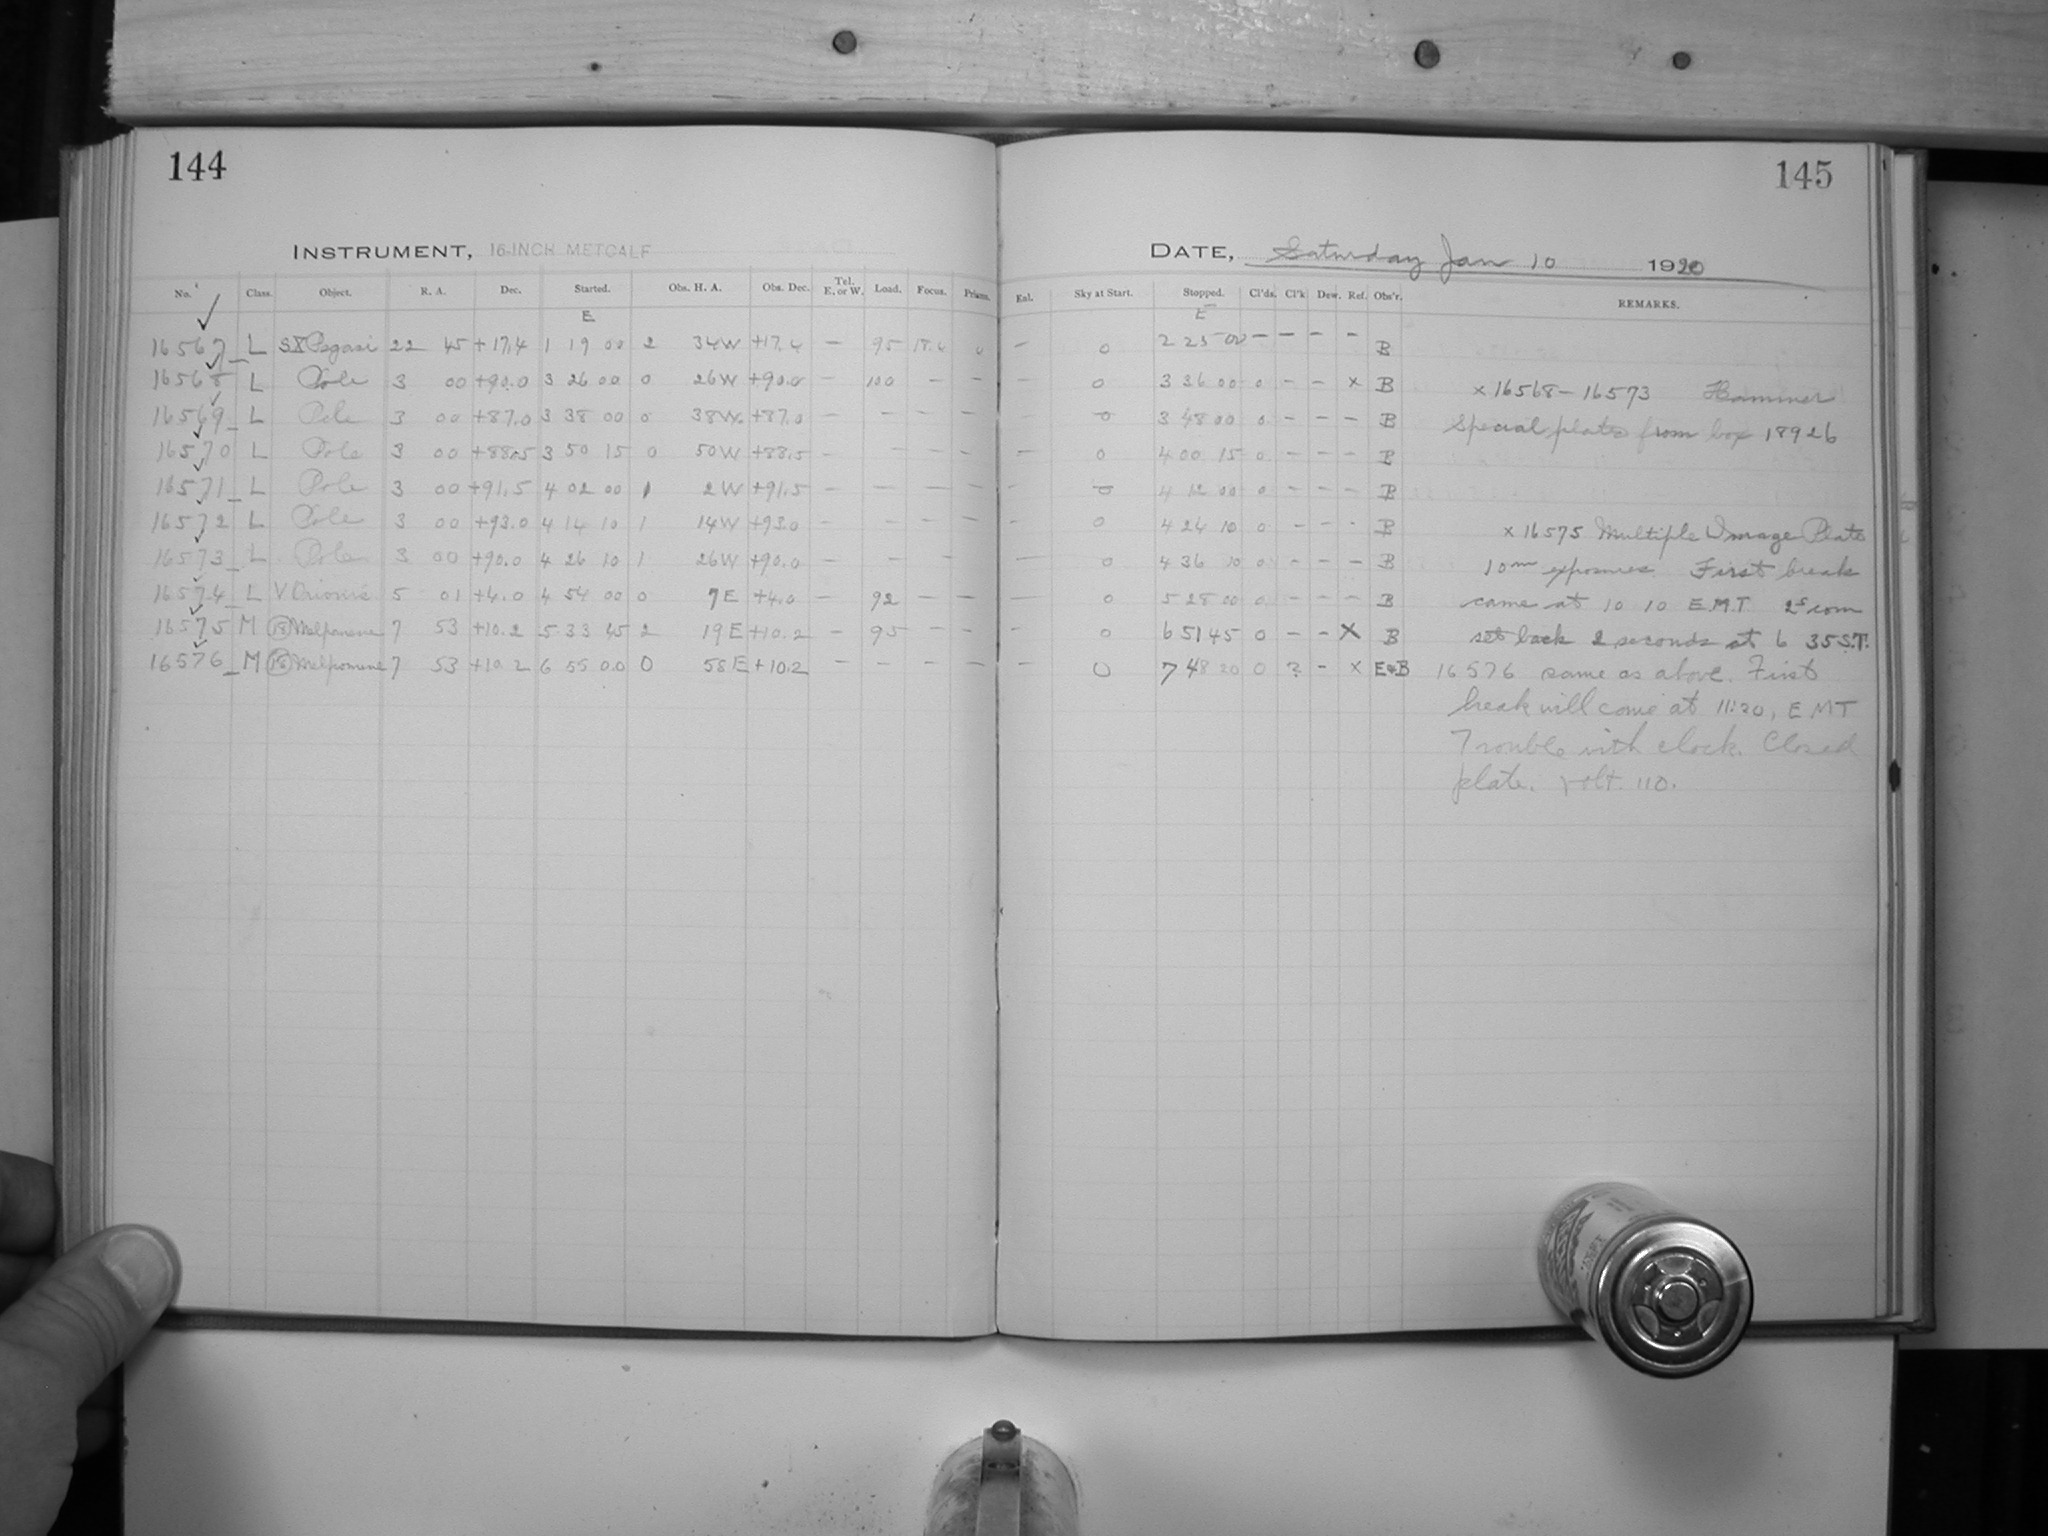 144
INSTRUMENT, 16-INCH METCALF
No. Class. Object. R. A. Dec. Started. Obs. H. A. Obs. Dec. Tel. E. or W. Load. Focus. Prisms.
E
16567 L SX Pegasi 22 45 +17.4 1 19 00 2 34W +17.4 — 95 18.6 0
16568 L Pole 3 00 +90.0 3 26 00 0 26W +90.0 — 100 — —
16569 L Pole 3 00 +87.0 3 38 00 0 38W +87.0 — — — —
16570 L Pole 3 00 +88.5 3 50 15 0 50W +88.5 — — — —
16571 L Pole 3 00 +91.5 4 02 00 1 2W +91.5 — — — —
16572 L Pole 3 00 +93.0 4 14 10 1 14W +93.0 — — — —
16573 L Pole 3 00 +90.0 4 26 10 1 26W +90.0 — — — —
16574 L V Orionis 5 01 +4.0 4 54 00 0 7E +4.0 — 92 — —
16575 M (18) Melpomene 7 53 +10.2 5 33 45 2 19E +10.2 — 95 — —
16576 M (18) Melpomene 7 53 +10.2 6 55 00 0 58E +10.2 — — — —
145
DATE, Saturday Jan 10 1920
Eal. Sky at Start. Stopped. Cl'ds. Cl'k Dew. Ref. Obs'r. REMARKS.
E
— 0 2 25 00 — — — — B
— 0 3 36 00 0 — — x B x 16568 — 16573 Hammer
— 0 3 48 00 0 — — — B Special plates from box 18926
— 0 4 00 15 0 — — — B
— 0 4 12 00 0 — — — B
— 0 4 24 10 0 — — — B x 16575 Multiple Image Plate
— 0 4 36 10 0 — — — B 10m exposures. First break
— 0 5 28 00 0 — — — B came at 10 10 E.M.T.
— 0 6 51 45 0 — — X B set back 2 seconds at 6 35 S.T.
— 0 7 48 20 0 ? — x E&B 16576 same as above. First
break will come at 11:20, EMT
Trouble with clock. Closed
plate. volt. 110.